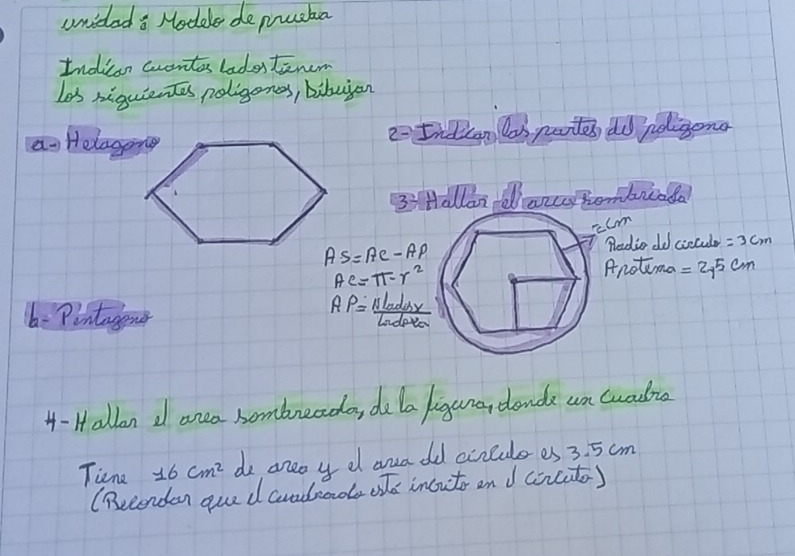 unidad: Modelo de prueba
Indicar cuantos lados tienen
los siguientes poligonos, Dibujar
a- Hexagono
2- Indicar las partes del poligono
3- Hallar el area sombreada
2cm
Radio del circulo = 3 cm
Apotema = 2,5 cm
AS = AC - AP
AC = π · r²
AP = Nlados x
b- Pentagono
4- Hallar el area sombreada, de la figura, donde un cuadra
Tiene 16 cm² de area y el area del circulo es 3.5 cm
(Recordar que el cuadrado está incrito en el circulo)